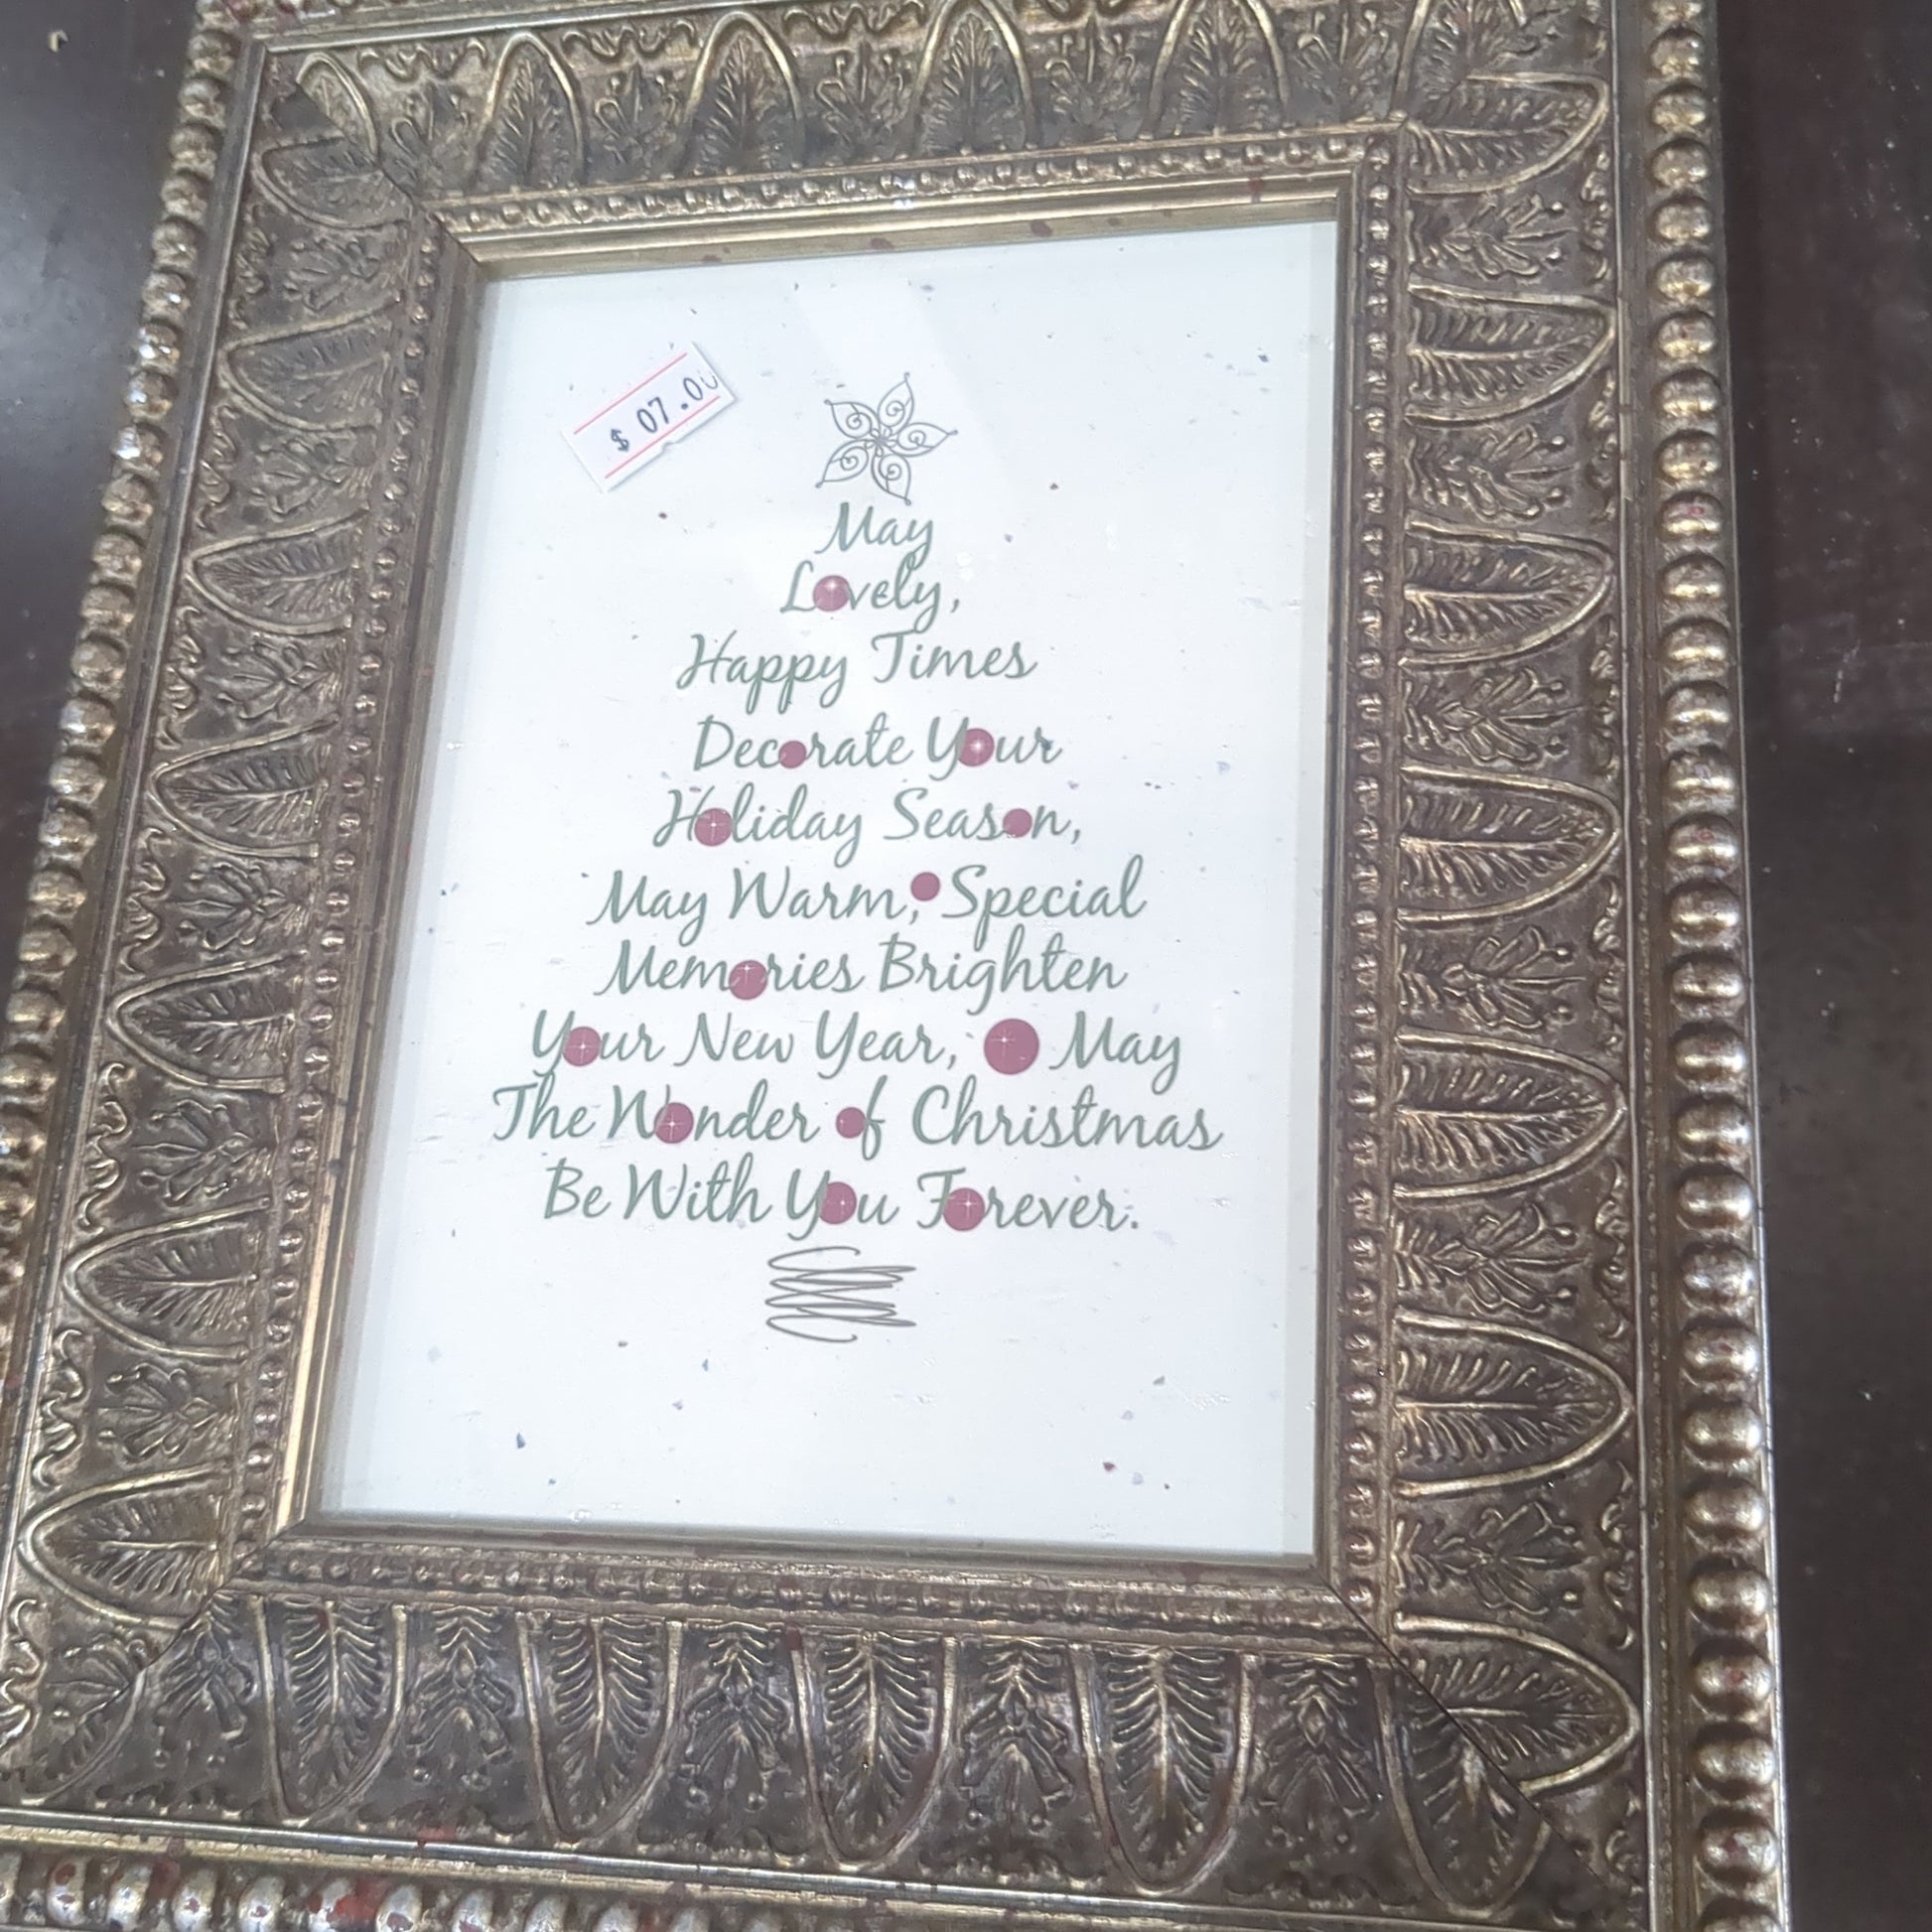 $ 07.00
May
Lovely,
Happy Times
Decorate Your
Holiday Season,
May Warm, Special
Memories Brighten
Your New Year, May
The Wonder of Christmas
Be With You Forever.